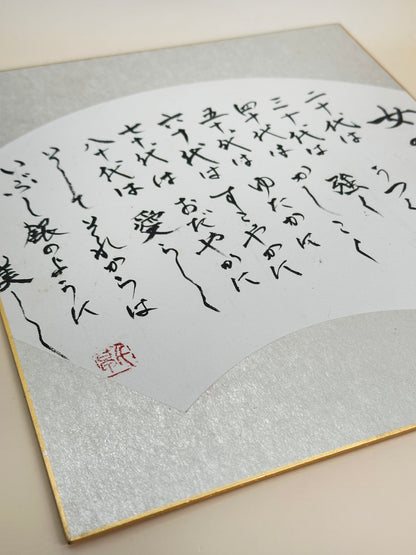 女の
二十代は
うつ
三十代は
強く
四十代は
かしこく
五十代は
ゆたかに
六十代は
すこやかに
七十代は
おだやかに
八十代は
愛らしく
そして
それからは
いぶし銀のように
美しく